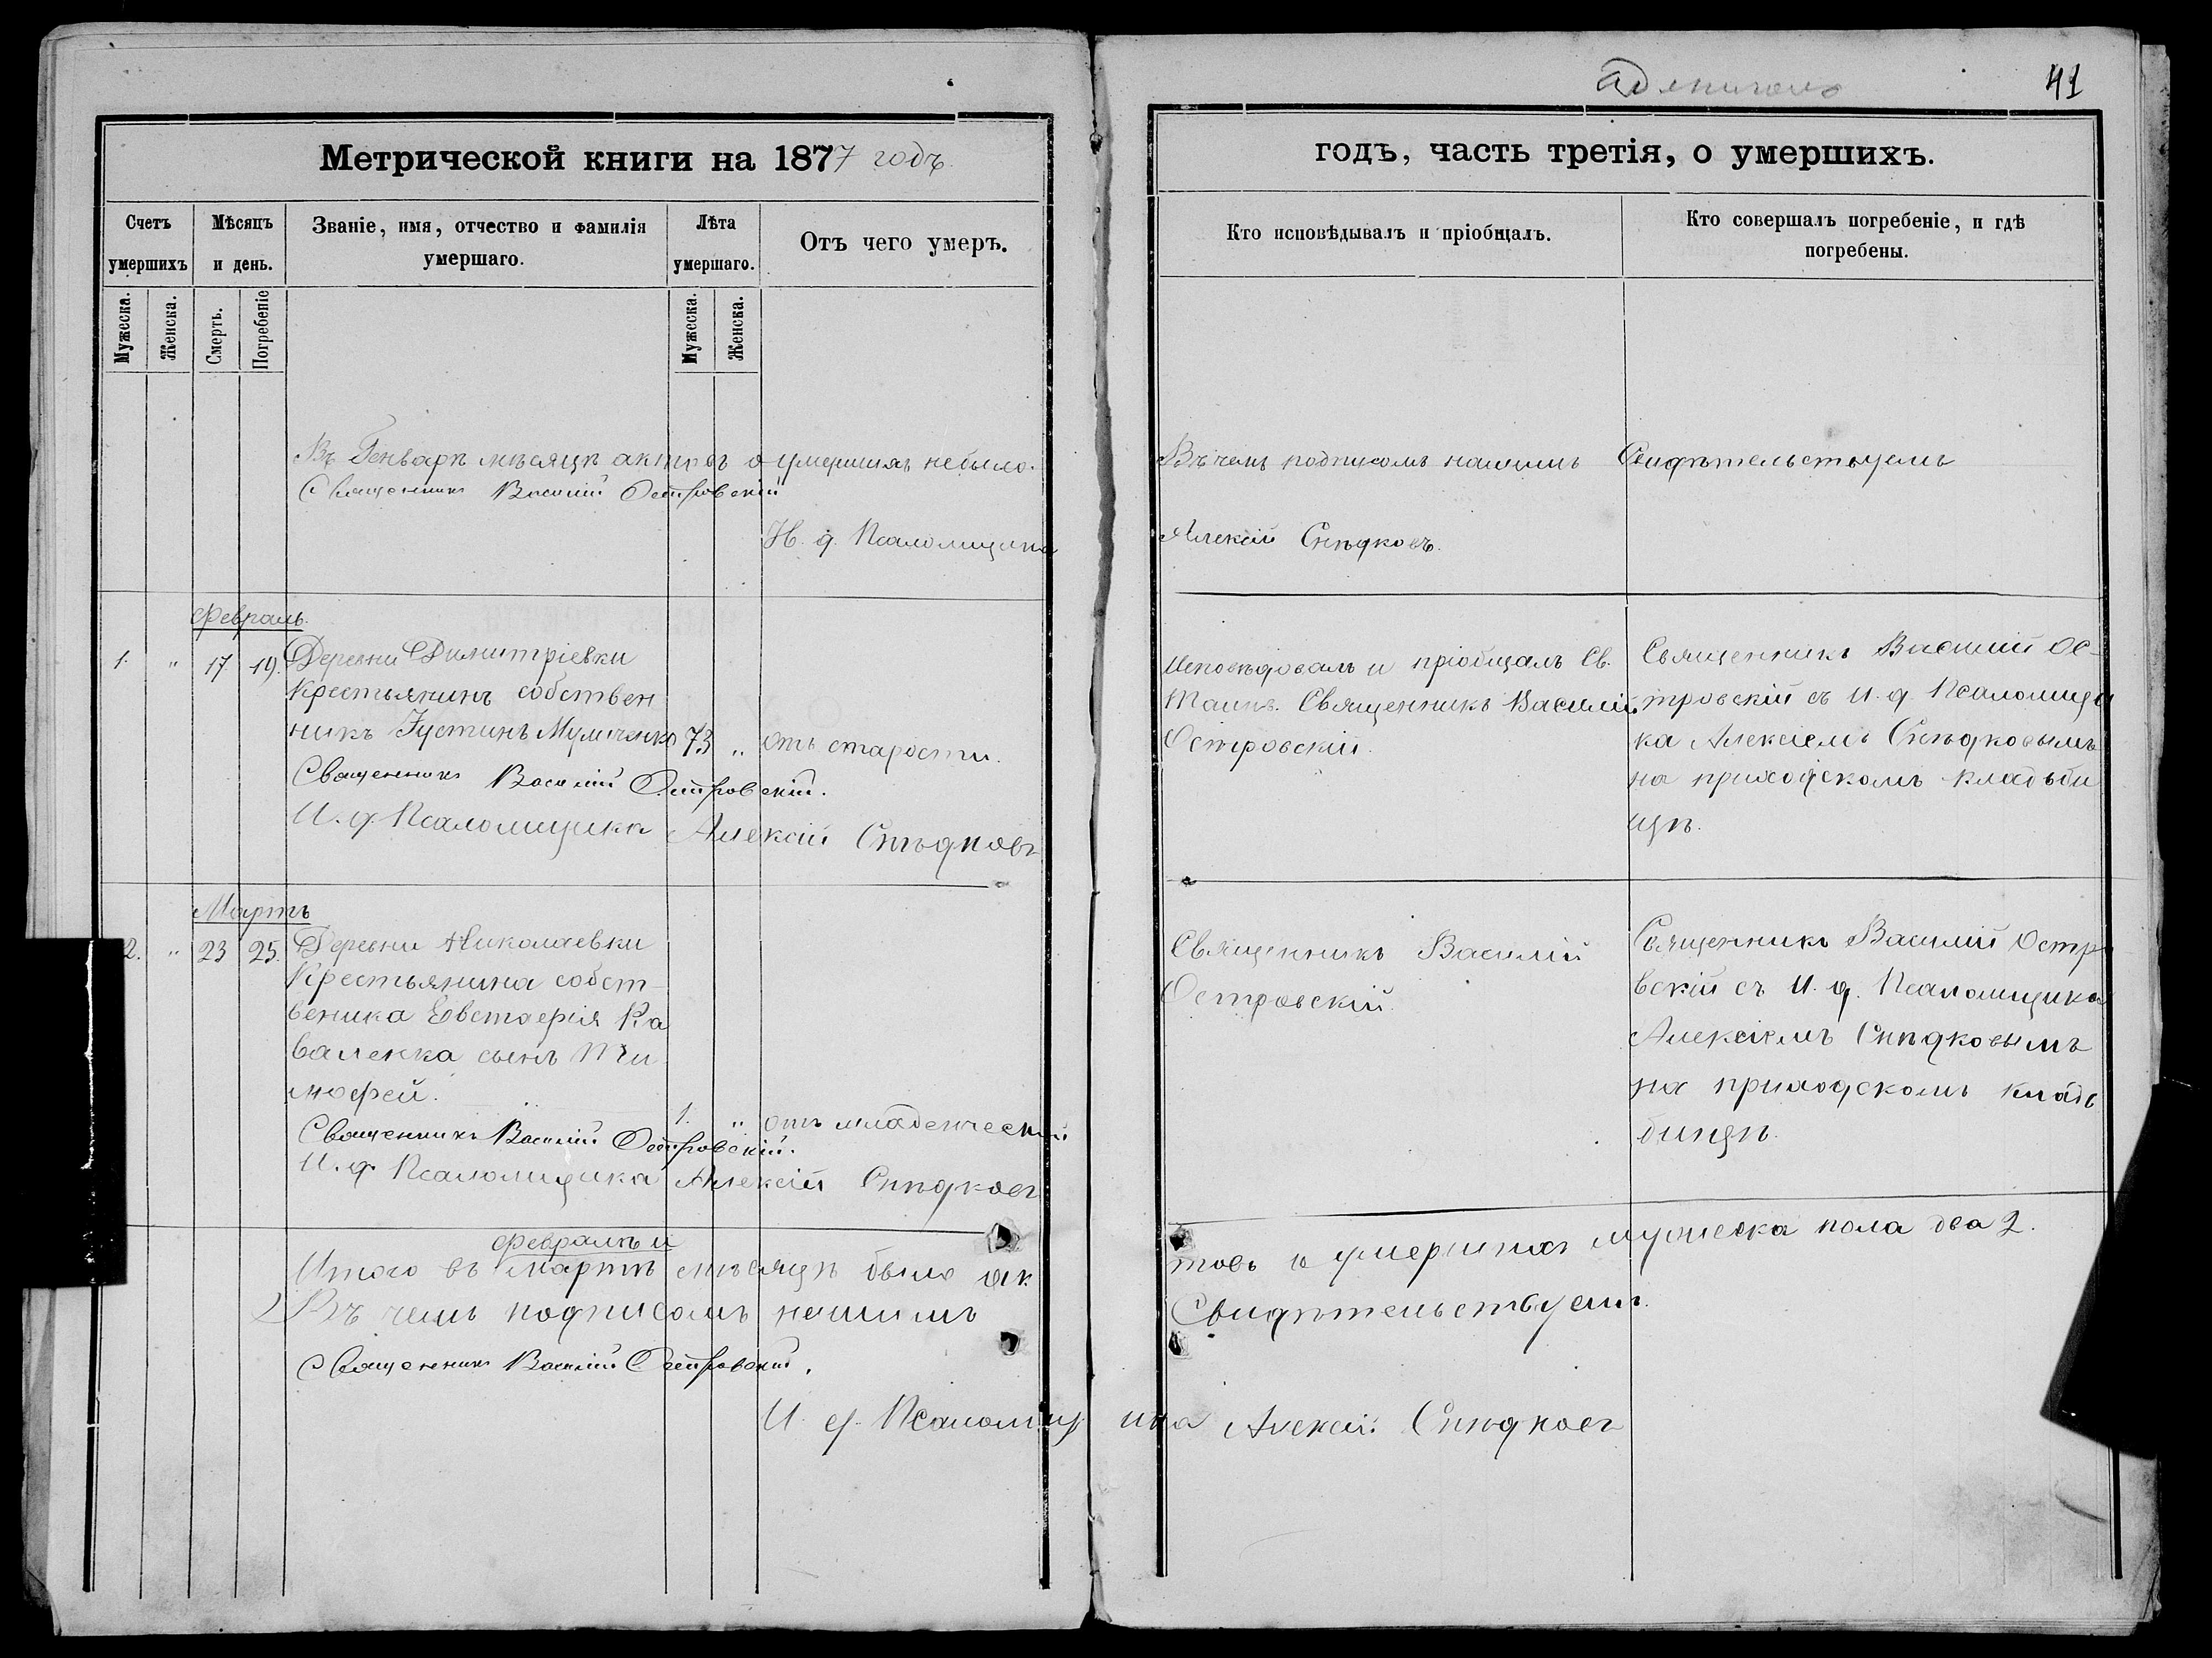 41
Метрической книги на 1877 годъ.
годъ, часть третія, о умершихъ.
Счетъ умершихъ
Мѣсяцъ и день.
Званіе, имя, отчество и фамилія умершаго.
Лѣта умершаго.
Отъ чего умеръ.
Кто исповѣдывалъ и пріобщалъ.
Кто совершалъ погребеніе, и гдѣ погребены.
Мужеска.
Женска.
Смерть.
Погребеніе
Мужеска.
Женска.
Въ Генварѣ мѣсяцѣ актовъ о умершихъ небыло.
Въ чемъ подписомъ нашимъ Свидѣтельствуемъ
Священникъ Василій Островскій
И. д. Псаломщика
Алексій Снѣдковъ.
Февраль.
1. " 17. 19. Деревни Димитріевки
Крестьянинъ собствен
никъ Іустинъ 73 " отъ старости.
Священникъ Василій Островскій.
И. д. Псаломщика Алексій Снѣдковъ
Исповѣдовалъ и пріобщалъ Св.
Таинъ. Священникъ Василій
Островскій.
Священникъ Василій Ос-
тровскій съ И. д. Псаломщи
ка Алексіемъ Снѣдковымъ
на приходскомъ кладьби
щѣ.
Мартъ
2. " 23 25. Деревни Николаевки
Крестьянина собст-
веника Евстафія Ка
валенка сынъ Ти
мофей.
1. " отъ младенческой
Священникъ Василій Островскій.
И. д. Псаломщика Алексій Снѣдковъ
Священникъ Василій
Островскій.
Священникъ Василій Остро
вскій съ И. д. Псаломщика
Алексіемъ Снѣдковымъ
на приходскомъ кладь
бищѣ.
Февралѣ и
Итого въ Мартѣ мѣсяцѣ было ак
товъ о умершихъ мужеска пола два 2.
Въ чемъ подписомъ нашимъ
Свидѣтельствуемъ.
Священникъ Василій Островскій.
И. д. Псаломщика Алексій Снѣдковъ